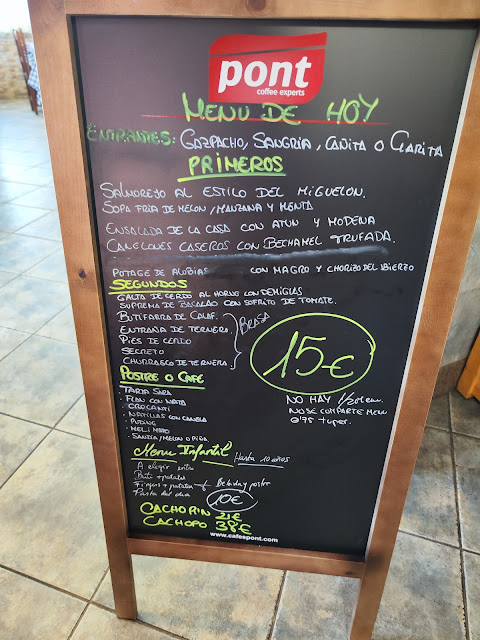 pont
coffee experts
MENU DE HOY
ENTRANTES: GAZPACHO, SANGRIA, CAÑITA O CLARITA
PRIMEROS
SALMOREJO AL ESTILO DEL MIGUELON.
SOPA FRIA DE MELON/MANZANA Y MENTA
ENSALADA DE LA CASA CON ATUN Y MODENA
CANELONES CASEROS CON BECHAMEL TRUFADA.
POTAGE DE ALUBIAS CON MAGRO Y CHORIZO DEL BIERZO
SEGUNDOS
GALTA DE CERDO AL HORNO CON DEMIGLAS
SUPREMA DE BACALAO CON SOFRITO DE TOMATE.
BUTIFARRA DE CALAF.
ENTRAÑA DE TERNERA
PIES DE CERDO
SECRETO
CHURRASCO DE TERNERA
BRASA
15€
POSTRE O CAFÉ
TARTA SARA
· FLAN CON NATA
· CROCANTI
· NATILLAS CON CANELA
· PUDING
· MEL I MATO
· SANDIA/MELON O PIÑA
NO HAY 1/2
NO SE COMPARTE MENU
0'75 tuper.
Menu Infantil Hasta 10 años
A elegir entre
+ patatas
Fingers + patatas + Bebida y postre
Pasta del dia
10€
CACHORIN 21€
CACHOPO 38€
www.cafespont.com